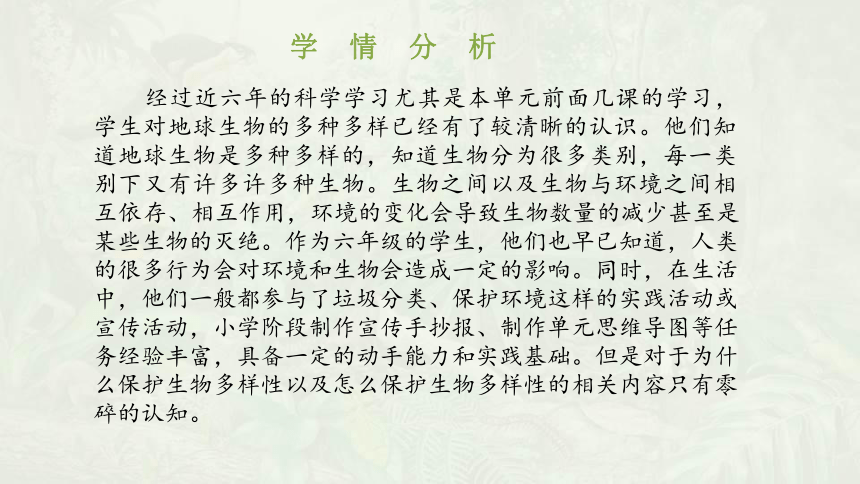 学 情 分 析
经过近六年的科学学习尤其是本单元前面几课的学习，
学生对地球生物的多种多样已经有了较清晰的认识。他们知
道地球生物是多种多样的，知道生物分为很多类别，每一类
别下又有许多许多种生物。生物之间以及生物与环境之间相
互依存、相互作用，环境的变化会导致生物数量的减少甚至是
某些生物的灭绝。作为六年级的学生，他们也早已知道，人类
的很多行为会对环境和生物会造成一定的影响。同时，在生活
中，他们一般都参与了垃圾分类、保护环境这样的实践活动或
宣传活动，小学阶段制作宣传手抄报、制作单元思维导图等任
务经验丰富，具备一定的动手能力和实践基础。但是对于为什
么保护生物多样性以及怎么保护生物多样性的相关内容只有零
碎的认知。